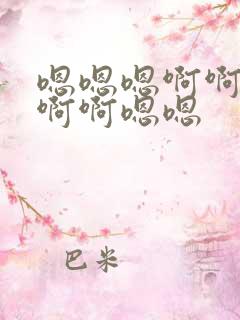 嗯嗯嗯啊啊
啊啊嗯嗯
巴米